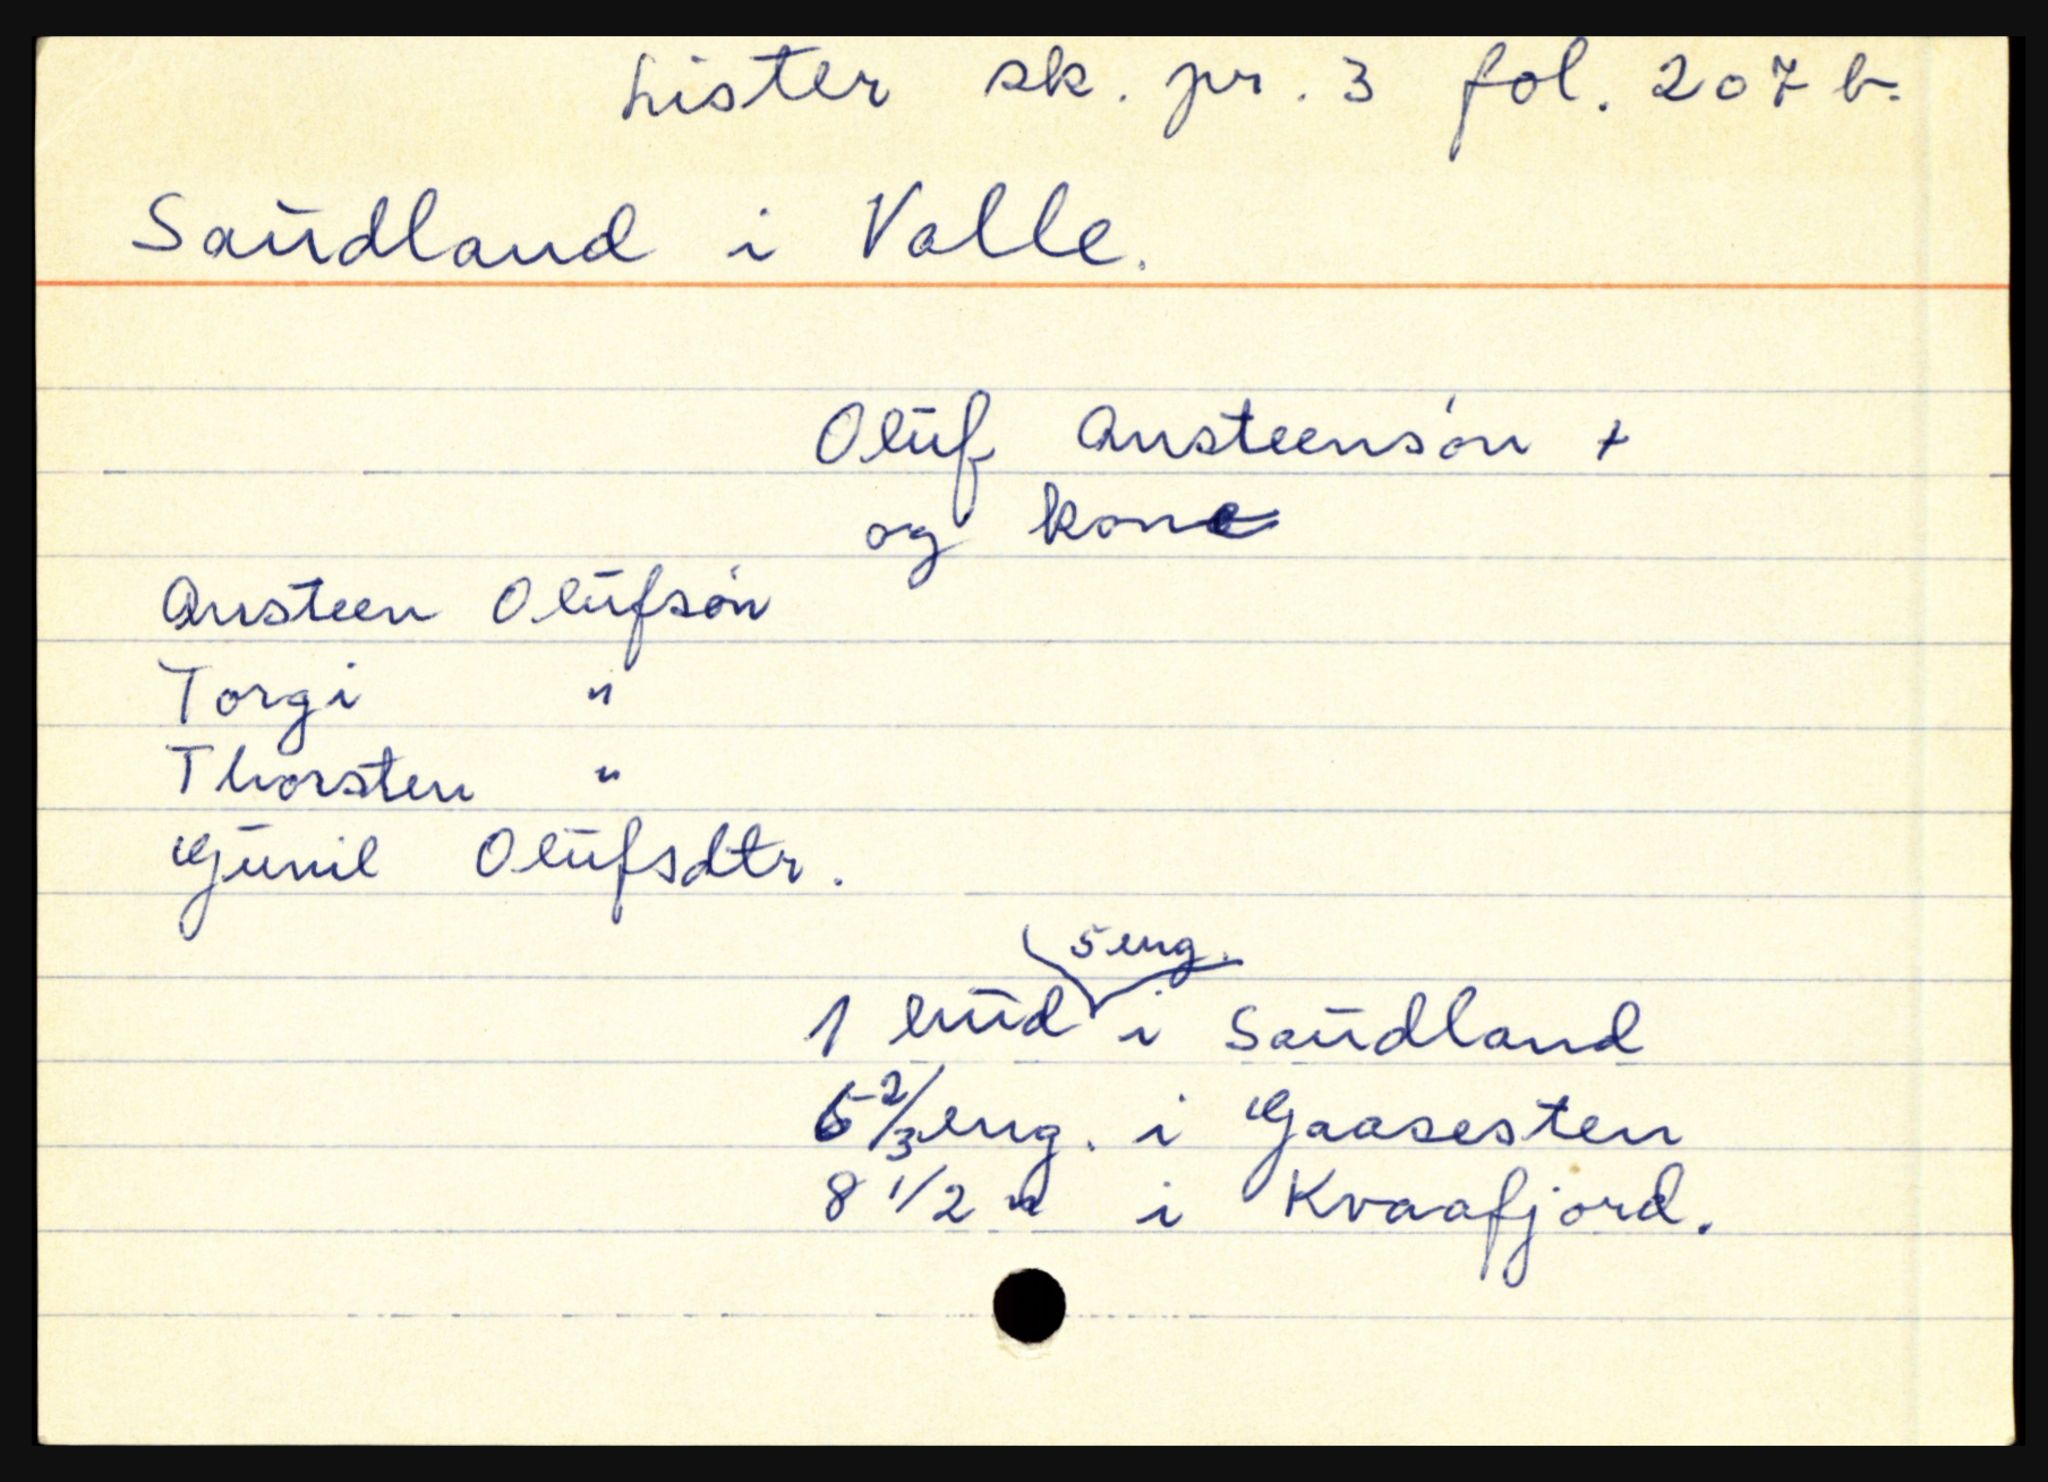 Lister sk. pr. 3 fol. 207 b.
Saudland i Valle.
Oluf Austeensøn +
og kone
Austeen Olufsøn
Torgi "
Thorsten "
Gunil Olufsdtr.
5 eng.
1 hud i Saudland
5 2/3 eng. i Gaasesten
8 1/2 " i Kvaafjord.